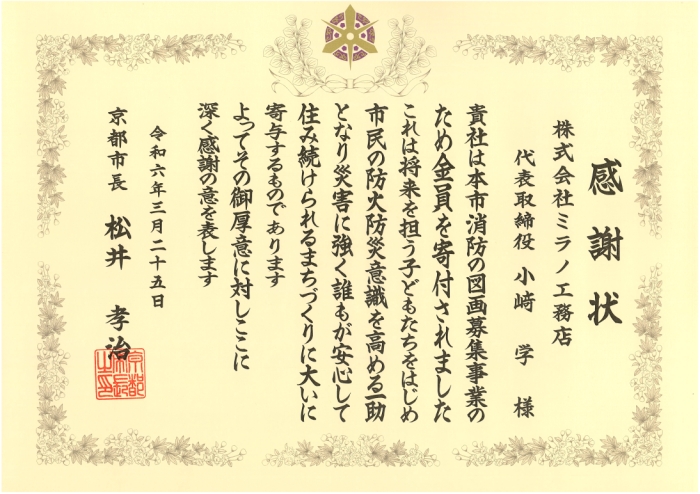 感謝状
株式会社ミラノ工務店
代表取締役 小﨑 学 様
貴社は本市消防の図画募集事業の
ため金員を寄付されました
これは将来を担う子どもたちをはじめ
市民の防火防災意識を高める一助
となり災害に強く誰もが安心して
住み続けられるまちづくりに大いに
寄与するものであります
よってその御厚意に対しここに
深く感謝の意を表します
令和六年三月二十五日
京都市長 松井 孝治
京都
市長
之印